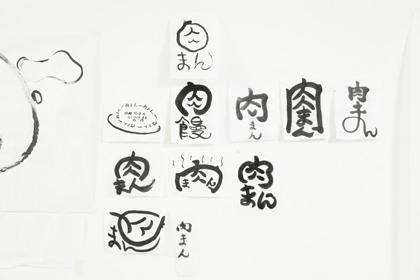 肉
まん
肉
饅
肉
まん
肉
まん
肉
まん
肉
まん
肉
まん
肉
まん
まん
肉
まん